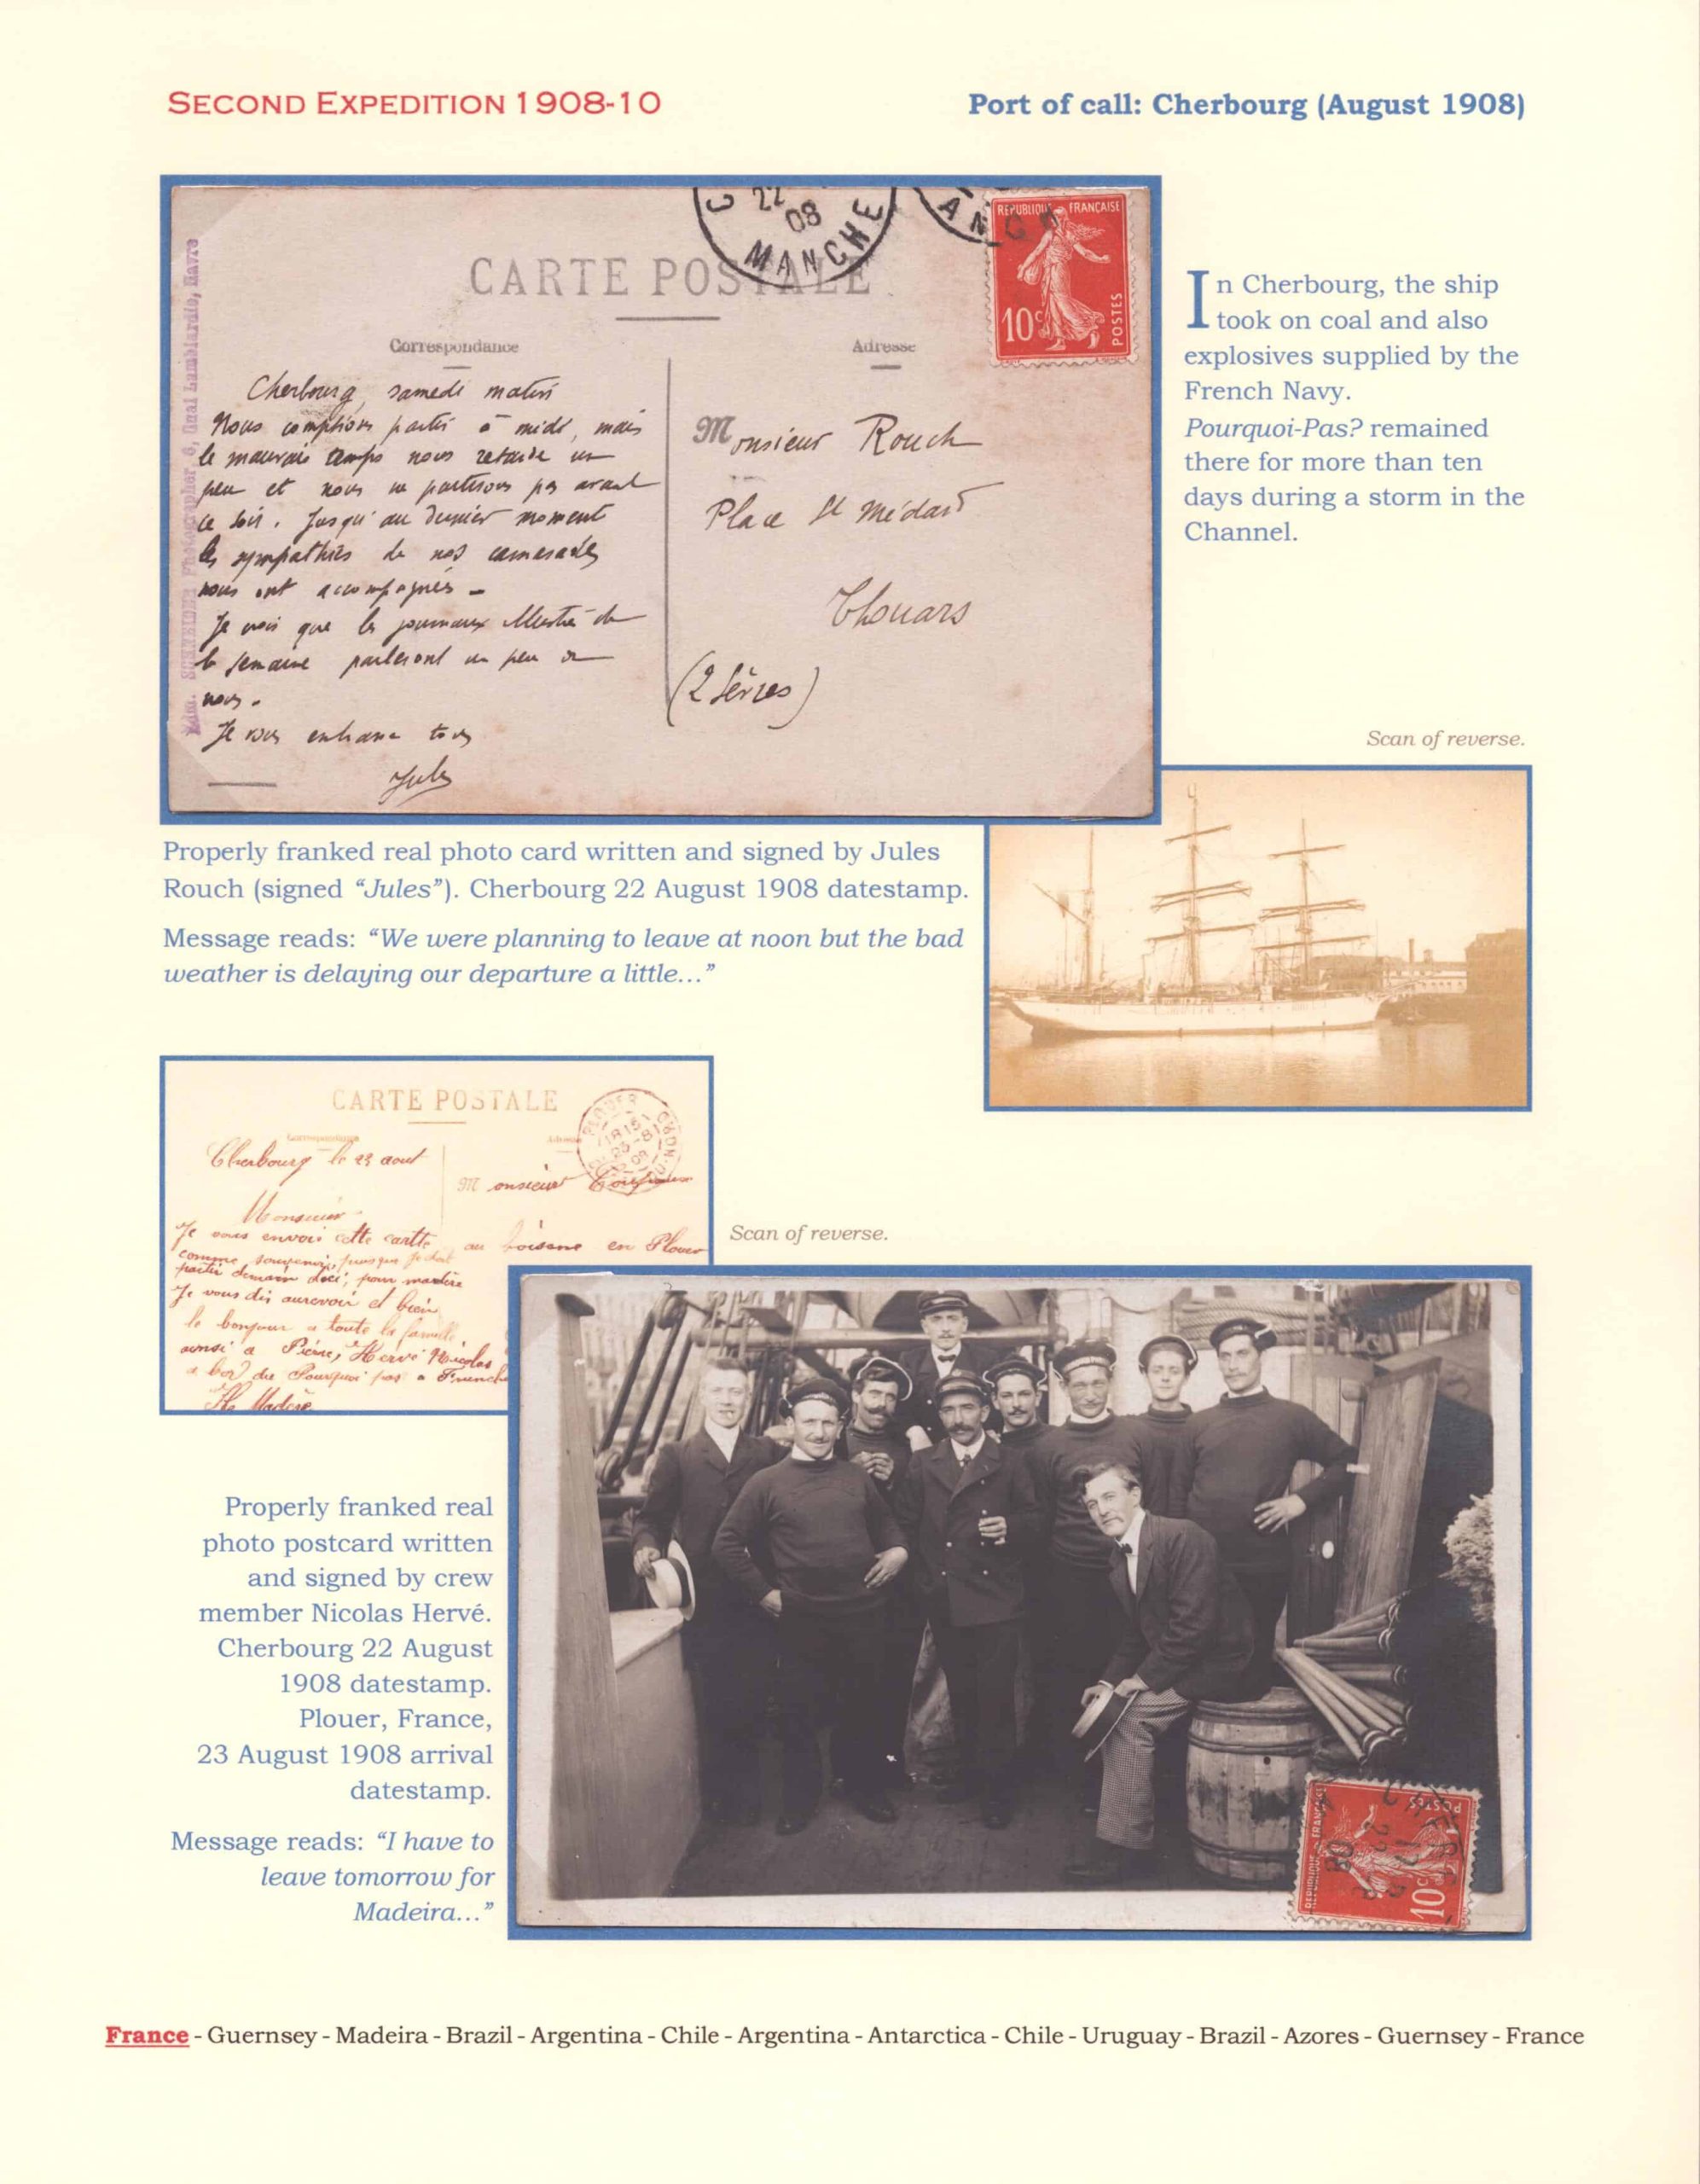 SECOND EXPEDITION 1908-10
Port of call: Cherbourg (August 1908)
22
08
MANCHE
AN
REPUBLIQUE FRANÇAISE
10c
POSTES
CARTE POSTALE
Correspondance
Adresse
Cherbourg, samedi matin
Nous comptions partir à midi, mais
le mauvais temps nous retarde un
peu et nous ne partirons pas avant
ce soir. Jusqu'au dernier moment
les sympathies de nos camarades
nous ont accompagnés -
Je crois que les journaux illustrés de
la semaine parleront un peu de
nous.
Je vous embrasse tous
Jules
Monsieur Rouch
Place St Médard
Thouars
(2 Sèvres)
Photographer, 6, Quai Lamblardie, Havre
In Cherbourg, the ship
took on coal and also
explosives supplied by the
French Navy.
Pourquoi-Pas? remained
there for more than ten
days during a storm in the
Channel.
Scan of reverse.
Properly franked real photo card written and signed by Jules
Rouch (signed “Jules”). Cherbourg 22 August 1908 datestamp.
Message reads: “We were planning to leave at noon but the bad
weather is delaying our departure a little…”
CARTE POSTALE
Correspondance
PLOUER
18 15
23-8
08
Cherbourg le 22 aout
Monsieur
Monsieur
Je vous envoi cette cartte
comme souvenir, puisque je doit
partir demain
pour madère
Je vous dis aurevoir et bien
le bonjour a toute la famille
ainsi a Pierre, Hervé Nicolas
a bord du Pourquoi pas a
Madère
au en Plouer
Scan of reverse.
Properly franked real
photo postcard written
and signed by crew
member Nicolas Hervé.
Cherbourg 22 August
1908 datestamp.
Plouer, France,
23 August 1908 arrival
datestamp.
Message reads: “I have to
leave tomorrow for
Madeira…”
REPUBLIQUE FRANÇAISE
10c
POSTES
08
France - Guernsey - Madeira - Brazil - Argentina - Chile - Argentina - Antarctica - Chile - Uruguay - Brazil - Azores - Guernsey - France